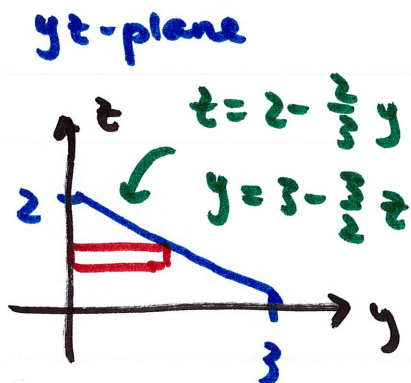 yz-plane
z
z = 2 - 2/3 y
2
y = 3 - 3/2 z
y
3